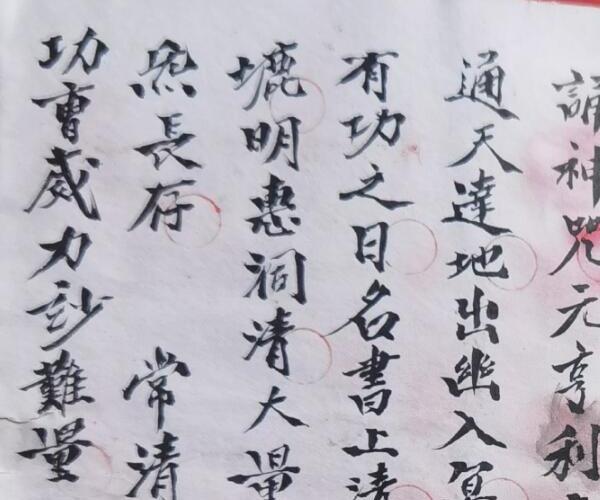 誦神咒元亨利
通天達地出幽入冥
有功之日名書上清
明惠洞清大量
長存 常清
功曹威力妙難量